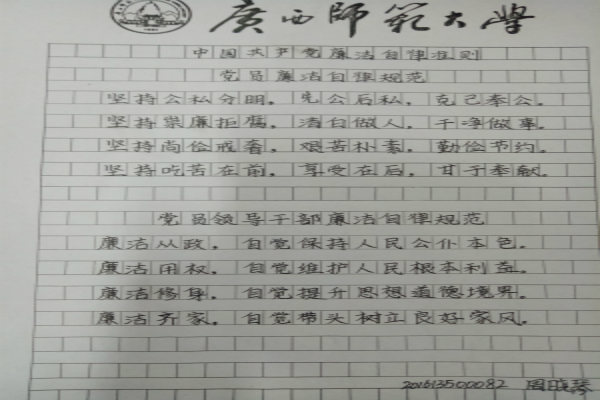 广西师范大学
中国共产党廉洁自律准则
党员廉洁自律规范
坚持公私分明,先公后私,克己奉公。
坚持崇廉拒腐,清白做人,干净做事。
坚持尚俭戒奢,艰苦朴素,勤俭节约。
坚持吃苦在前,享受在后,甘于奉献。
党员领导干部廉洁自律规范
廉洁从政,自觉保持人民公仆本色。
廉洁用权,自觉维护人民根本利益。
廉洁修身,自觉提升思想道德境界。
廉洁齐家,自觉带头树立良好家风。
201613500082 周晓琴